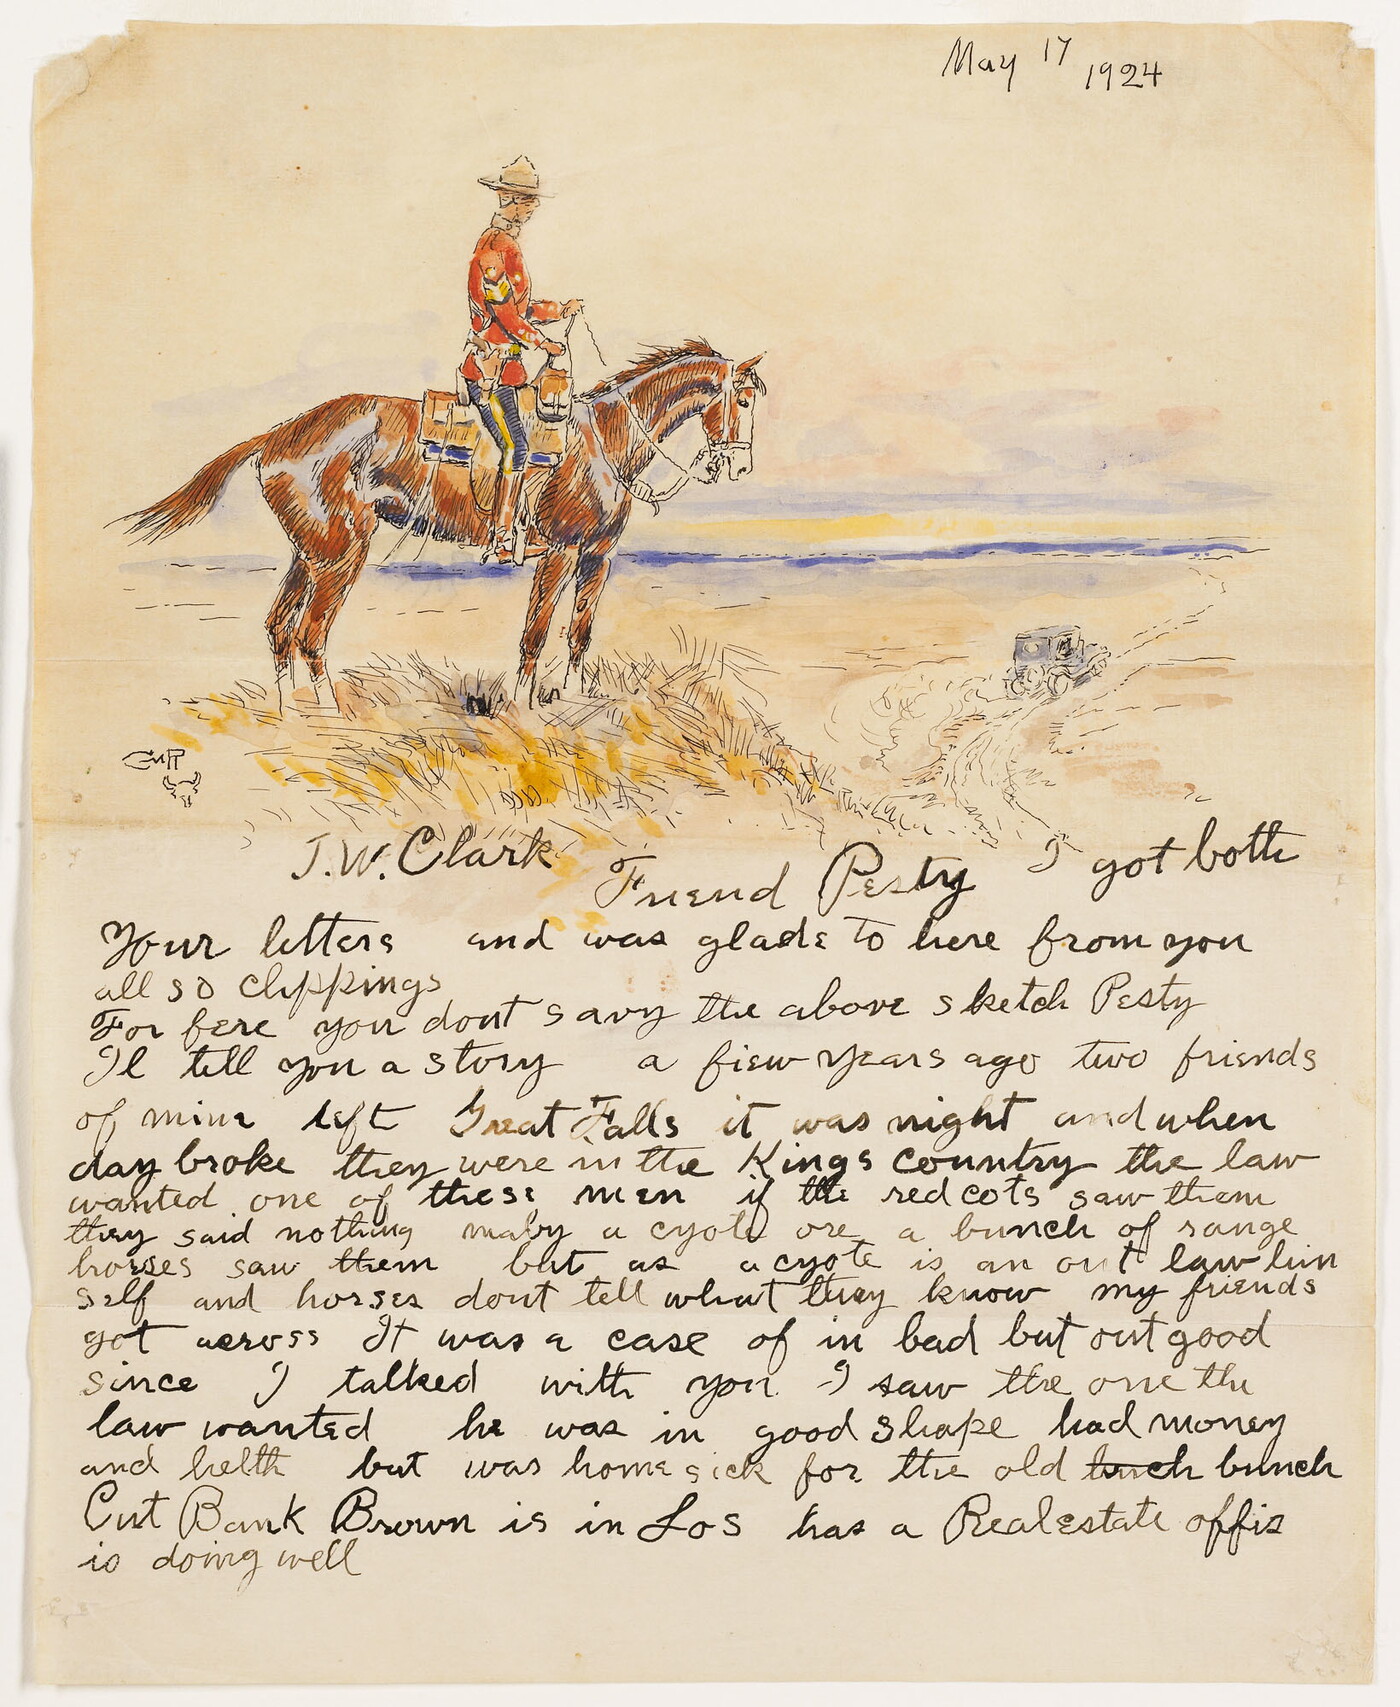 May 17 1924
CMR
J.W. Clark
Friend Pesty I got both
Your letters and was glade to here from you
all so clippings
For fere you dont savy the above sketch Pesty
Il tell you a story a fiew years ago two friends
of mine left Great Falls it was night and when
day broke they were in the Kings country the law
wanted one of these men if the red cots saw them
they said nothing maby a cyote ore a bunch of range
horses saw them but as a cyote is an out law him
self and horses dont tell what they know my friends
got across It was a case of in bad but out good
since I talked with you I saw the one the
law wanted he was in good shape had money
and helth but was home sick for the old bunch bunch
Cut Bank Brown is in Los has a Real estate offis
is doing well